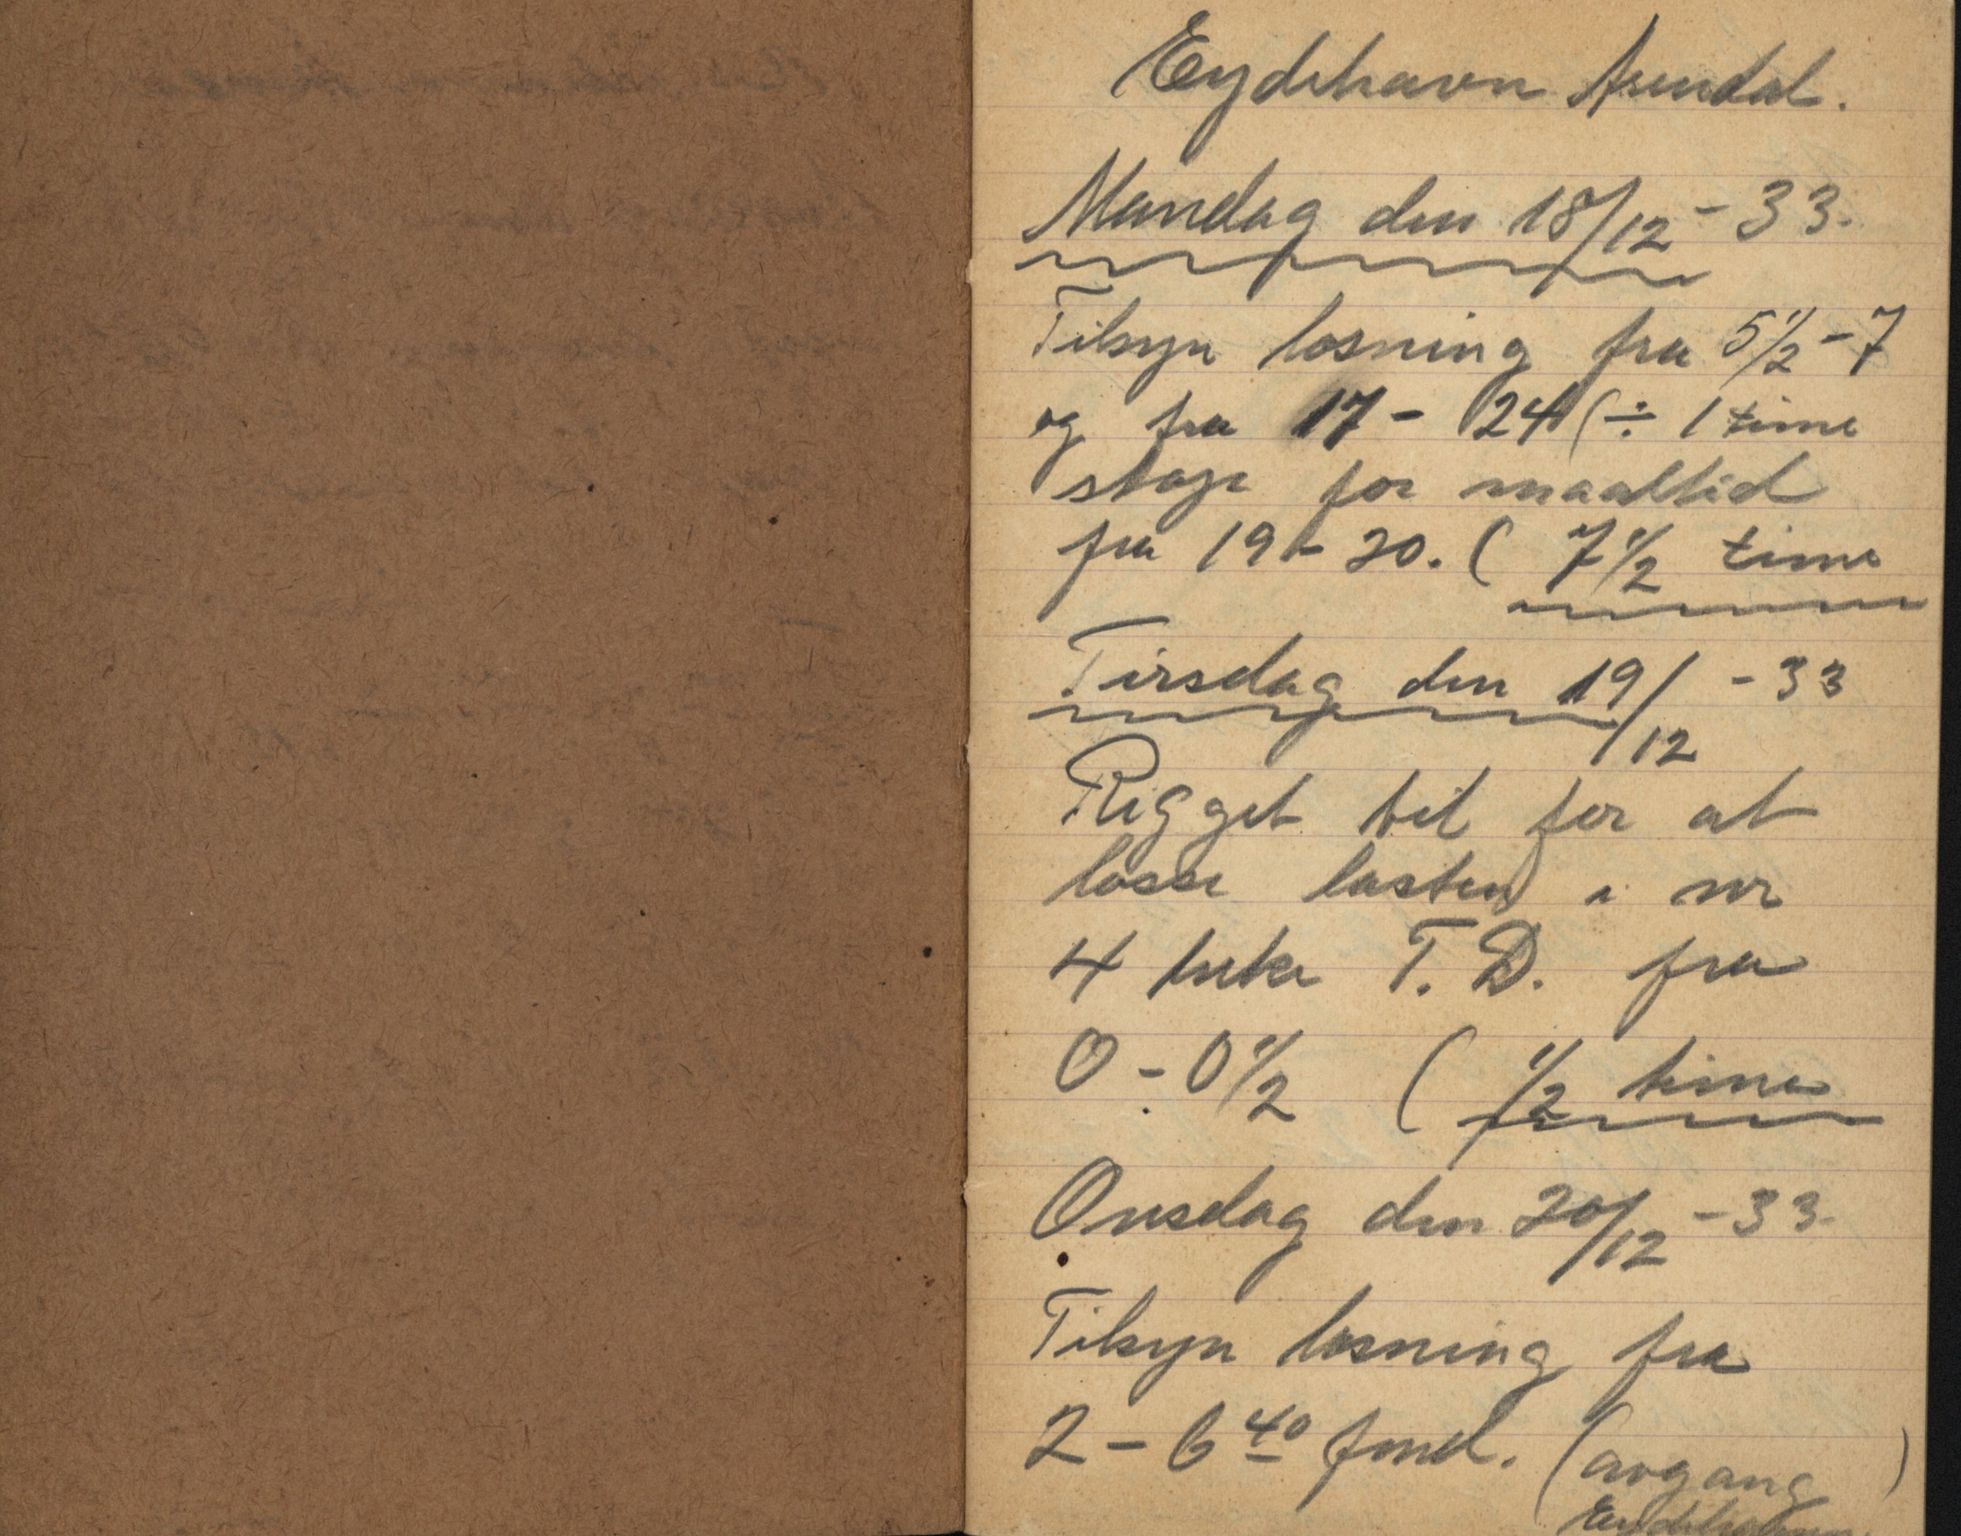 Eydehavn Arendal.
Mandag den 18/12 - 33.
Tilsyn losning fra 5 1/2 - 7
og fra 17 - 24 (÷ 1 time
stop for maaltid
fra 19 - 20. ( 7 1/2 time
Tirsdag den 19/12 - 33
Rigget til for at
losse lasten i nr
4 luke T. D. fra
0 - 0 1/2 ( 1/2 time
Onsdag den 20/12 - 33.
Tilsyn losning fra
2 - 6 40 fmd. (avgang )
Eydehavn